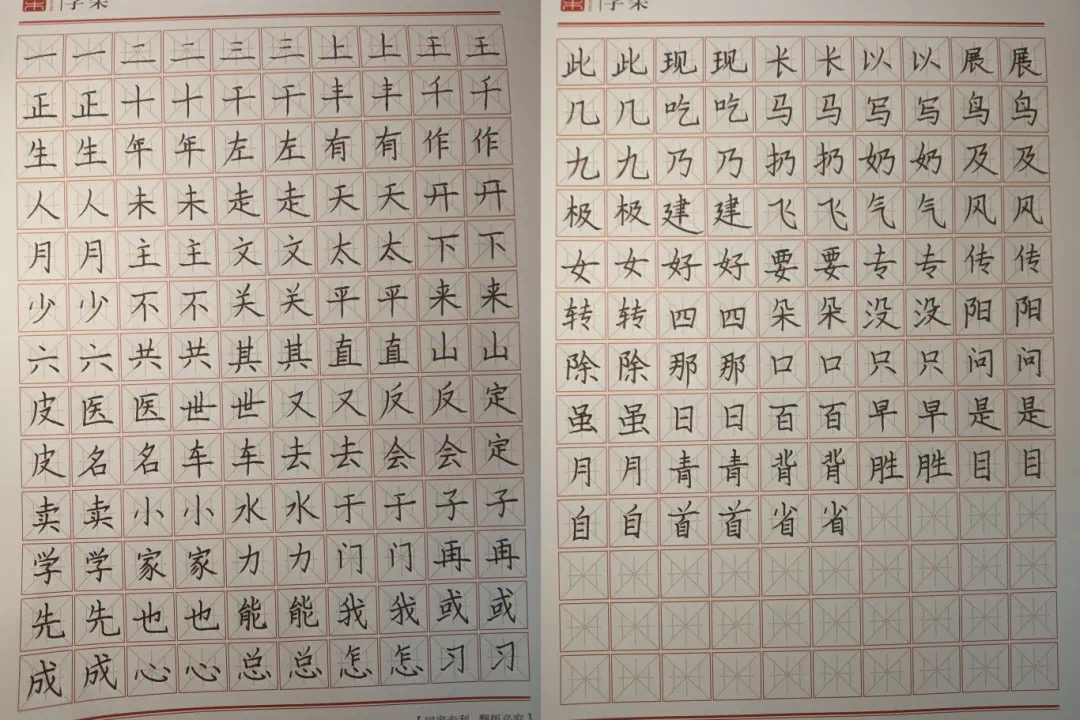 一一二二三三上上王王
正正十十干干丰丰千千
生生年年左左有有作作
人人未未走走天天开开
月月主主文文太太下下
少少不不关关平平来来
六六共共其其直直山山
皮医医世世又又反反定
皮名名车车去去会会定
卖卖小小水水于于子子
学学家家力力门门再再
先先也也能能我我或或
成成心心总总怎怎习习
此此现现长长以以展展
几几吃吃马马写写鸟鸟
九九乃乃扔扔奶奶及及
极极建建飞飞气气风风
女女好好要要专专传传
转转四四朵朵没没阳阳
除除那那口口只只问问
虽虽日日百百早早是是
月月青青背背胜胜目目
自自首首省省